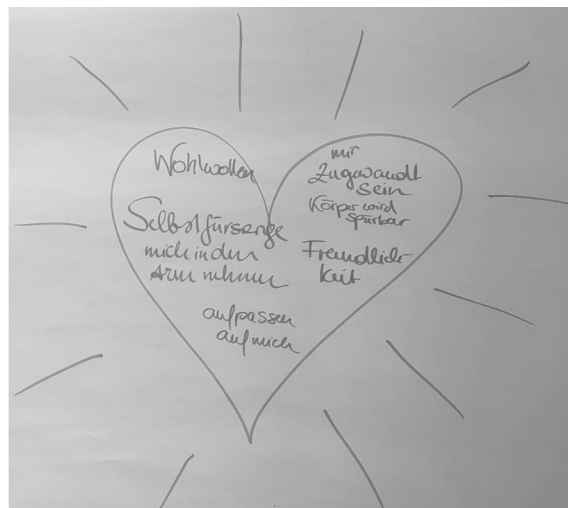 Wohlwollen
Selbstfürsorge
mich in den
Arm nehmen
mir
Zugewandt
sein
Körper wird
spürbar
Freundlich-
keit
aufpassen
auf mich